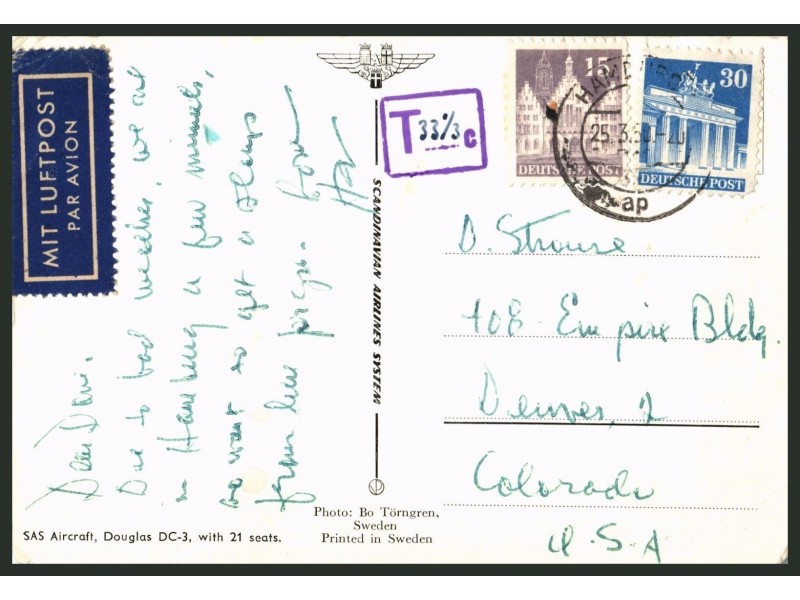 MIT LUFTPOST
PAR AVION
Dear Dave,
Due to bad weather, we are
in Hamburg a few minutes,
so want to get a stamp
from here
SAS Aircraft, Douglas DC-3, with 21 seats.
SCANDINAVIAN AIRLINES SYSTEM
Photo: Bo Törngren,
Sweden
Printed in Sweden
T 33⅓ c
DEUTSCHE POST
30
DEUTSCHE POST
HAMBURG
25.3.50
ap
D. Strouse
408 Empire Bldg.
Denver, 2
Colorado
U.S.A